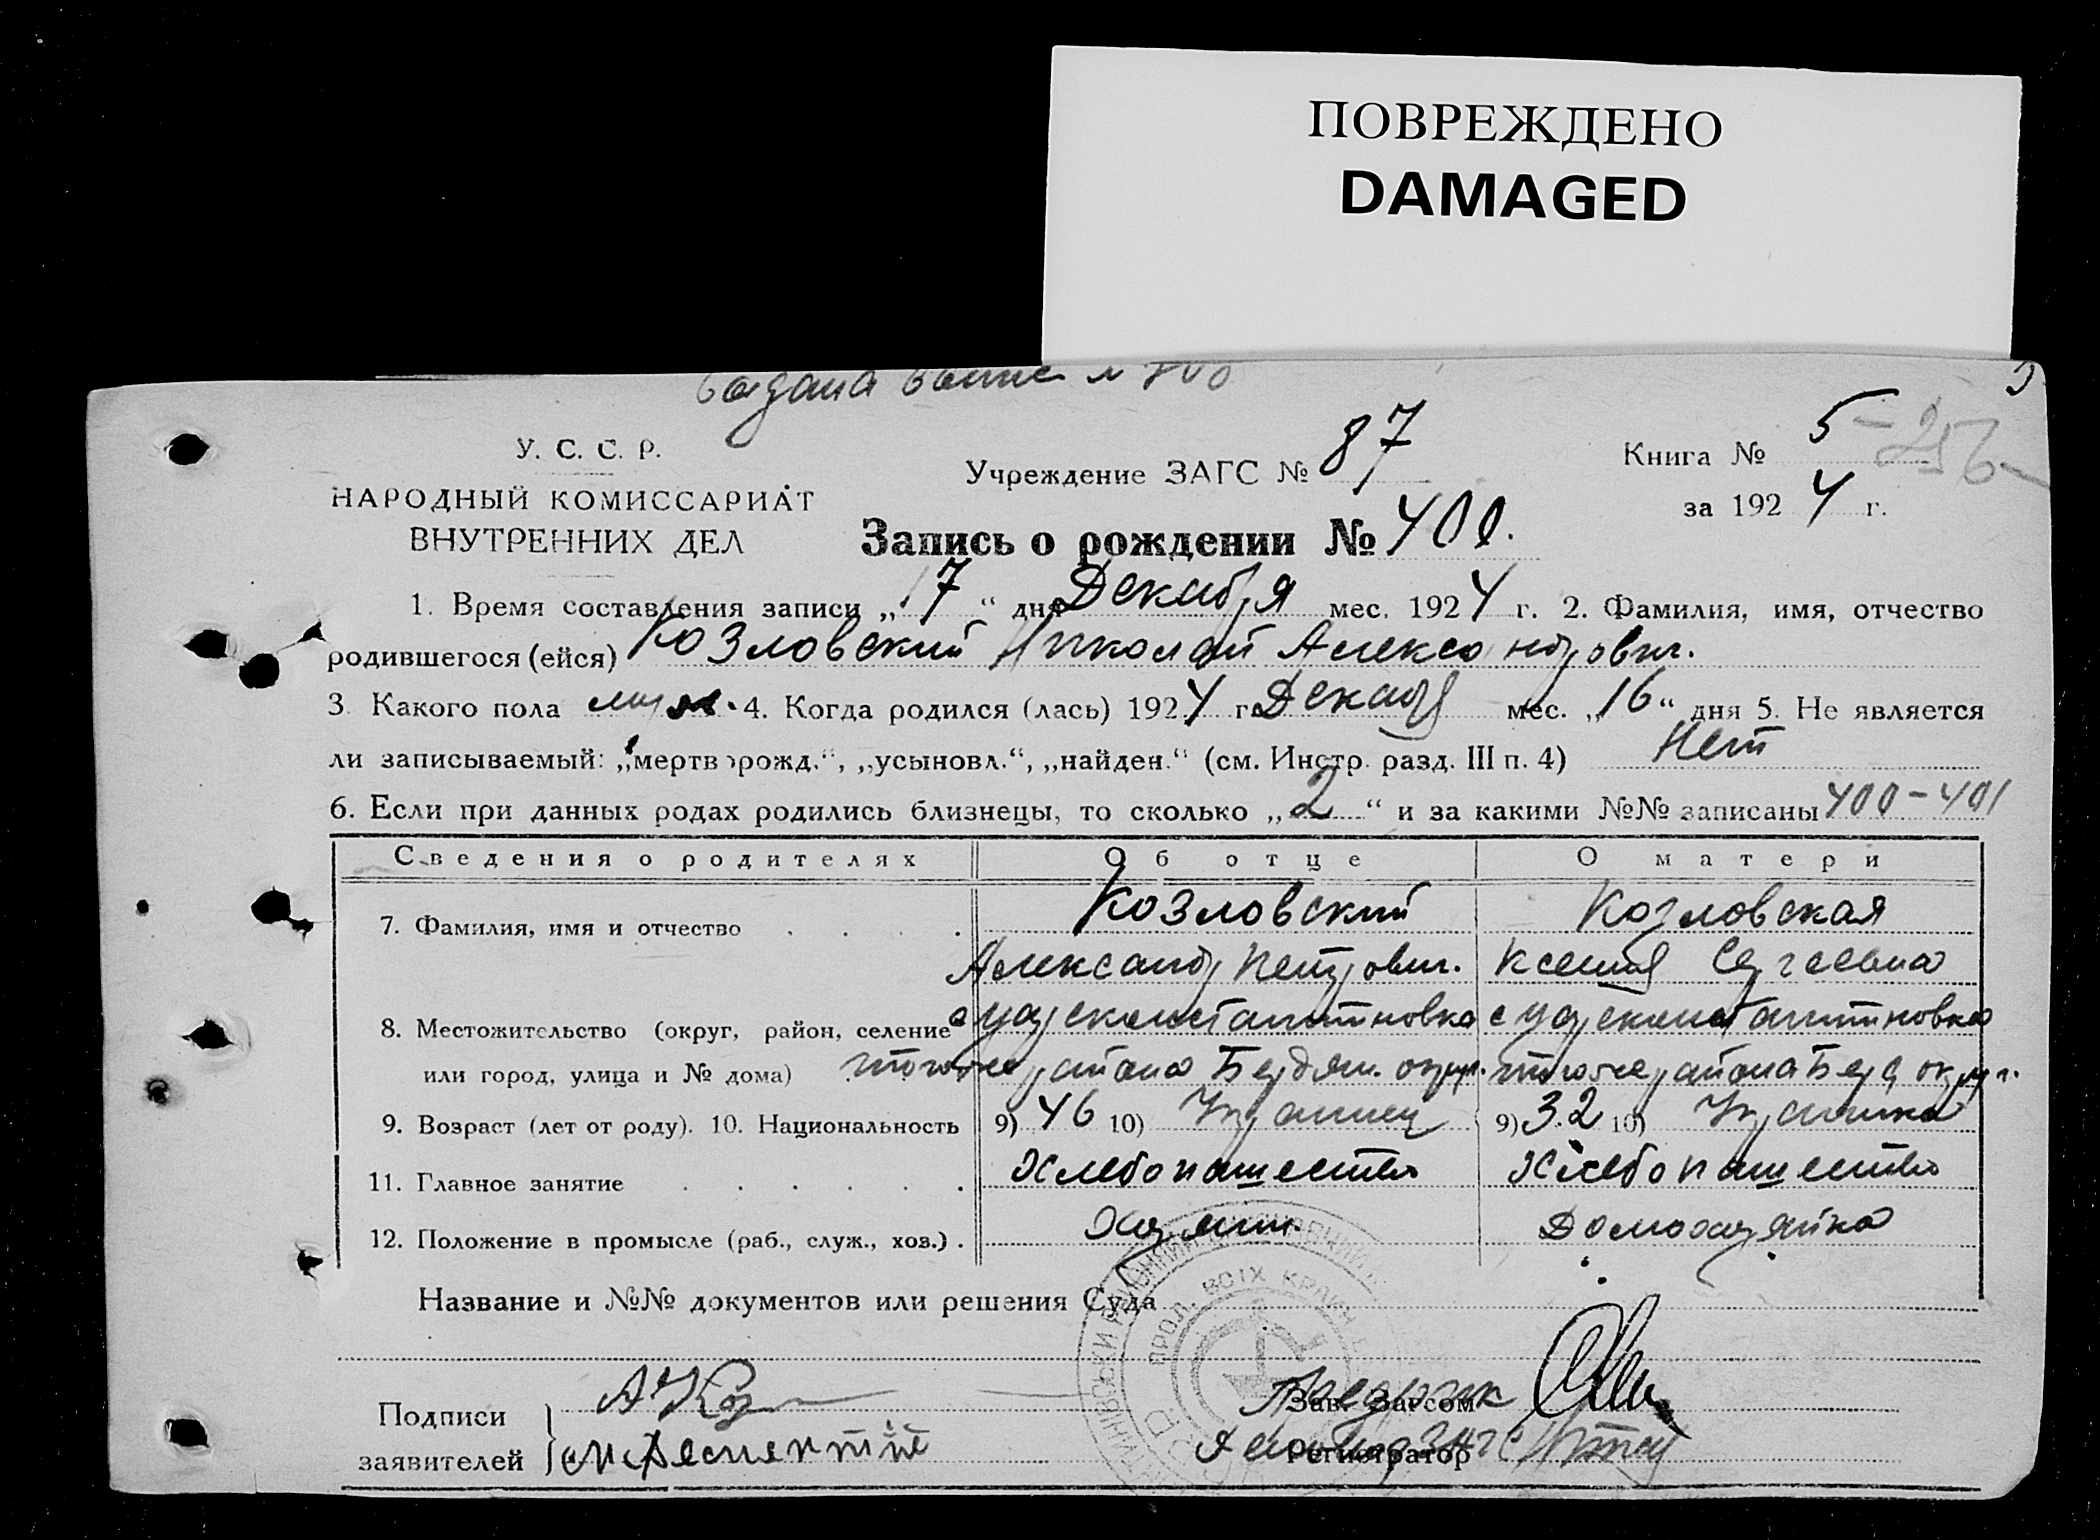 ПОВРЕЖДЕНО
DAMAGED
У. С. С. Р.
НАРОДНЫЙ КОМИССАРИАТ
ВНУТРЕННИХ ДЕЛ
Учреждение ЗАГС № 87
Книга № 5
за 1924 г.
Запись о рождении № 400.
1. Время составления записи „17“ дня Декабря мес. 1924 г. 2. Фамилия, имя, отчество
родившегося (ейся) Козловский Николай Александрович.
3. Какого пола муж. 4. Когда родился (лась) 1924 г. Декабря мес. „16“ дня 5. Не является
ли записываемый: „мертворожд.“, „усыновл.“, „найден.“ (см. Инстр. разд. III п. 4) Нет
6. Если при данных родах родились близнецы, то сколько „2“ и за какими №№ записаны 400-401
Сведения о родителях Об отце О матери
7. Фамилия, имя и отчество Козловский Козловская
Александр Петрович. Ксения Сергеевна
8. Местожительство (округ, район, селение с Цареконстантиновка с Цареконстантиновка
или город, улица и № дома) того же района Бердян. округ. того же района Берд округ.
9. Возраст (лет от роду). 10. Национальность 9) 46 10) Украинец 9) 32 10) Украинка
11. Главное занятие Хлебопашество Хлебопашество
12. Положение в промысле (раб., служ., хоз.) Хозяин. Домохозяйка
Название и №№ документов или решения Суда
ПРОЛ. ВСІХ КРАЇН
Подписи
заявителей
Зав. Загсом
Регистратор